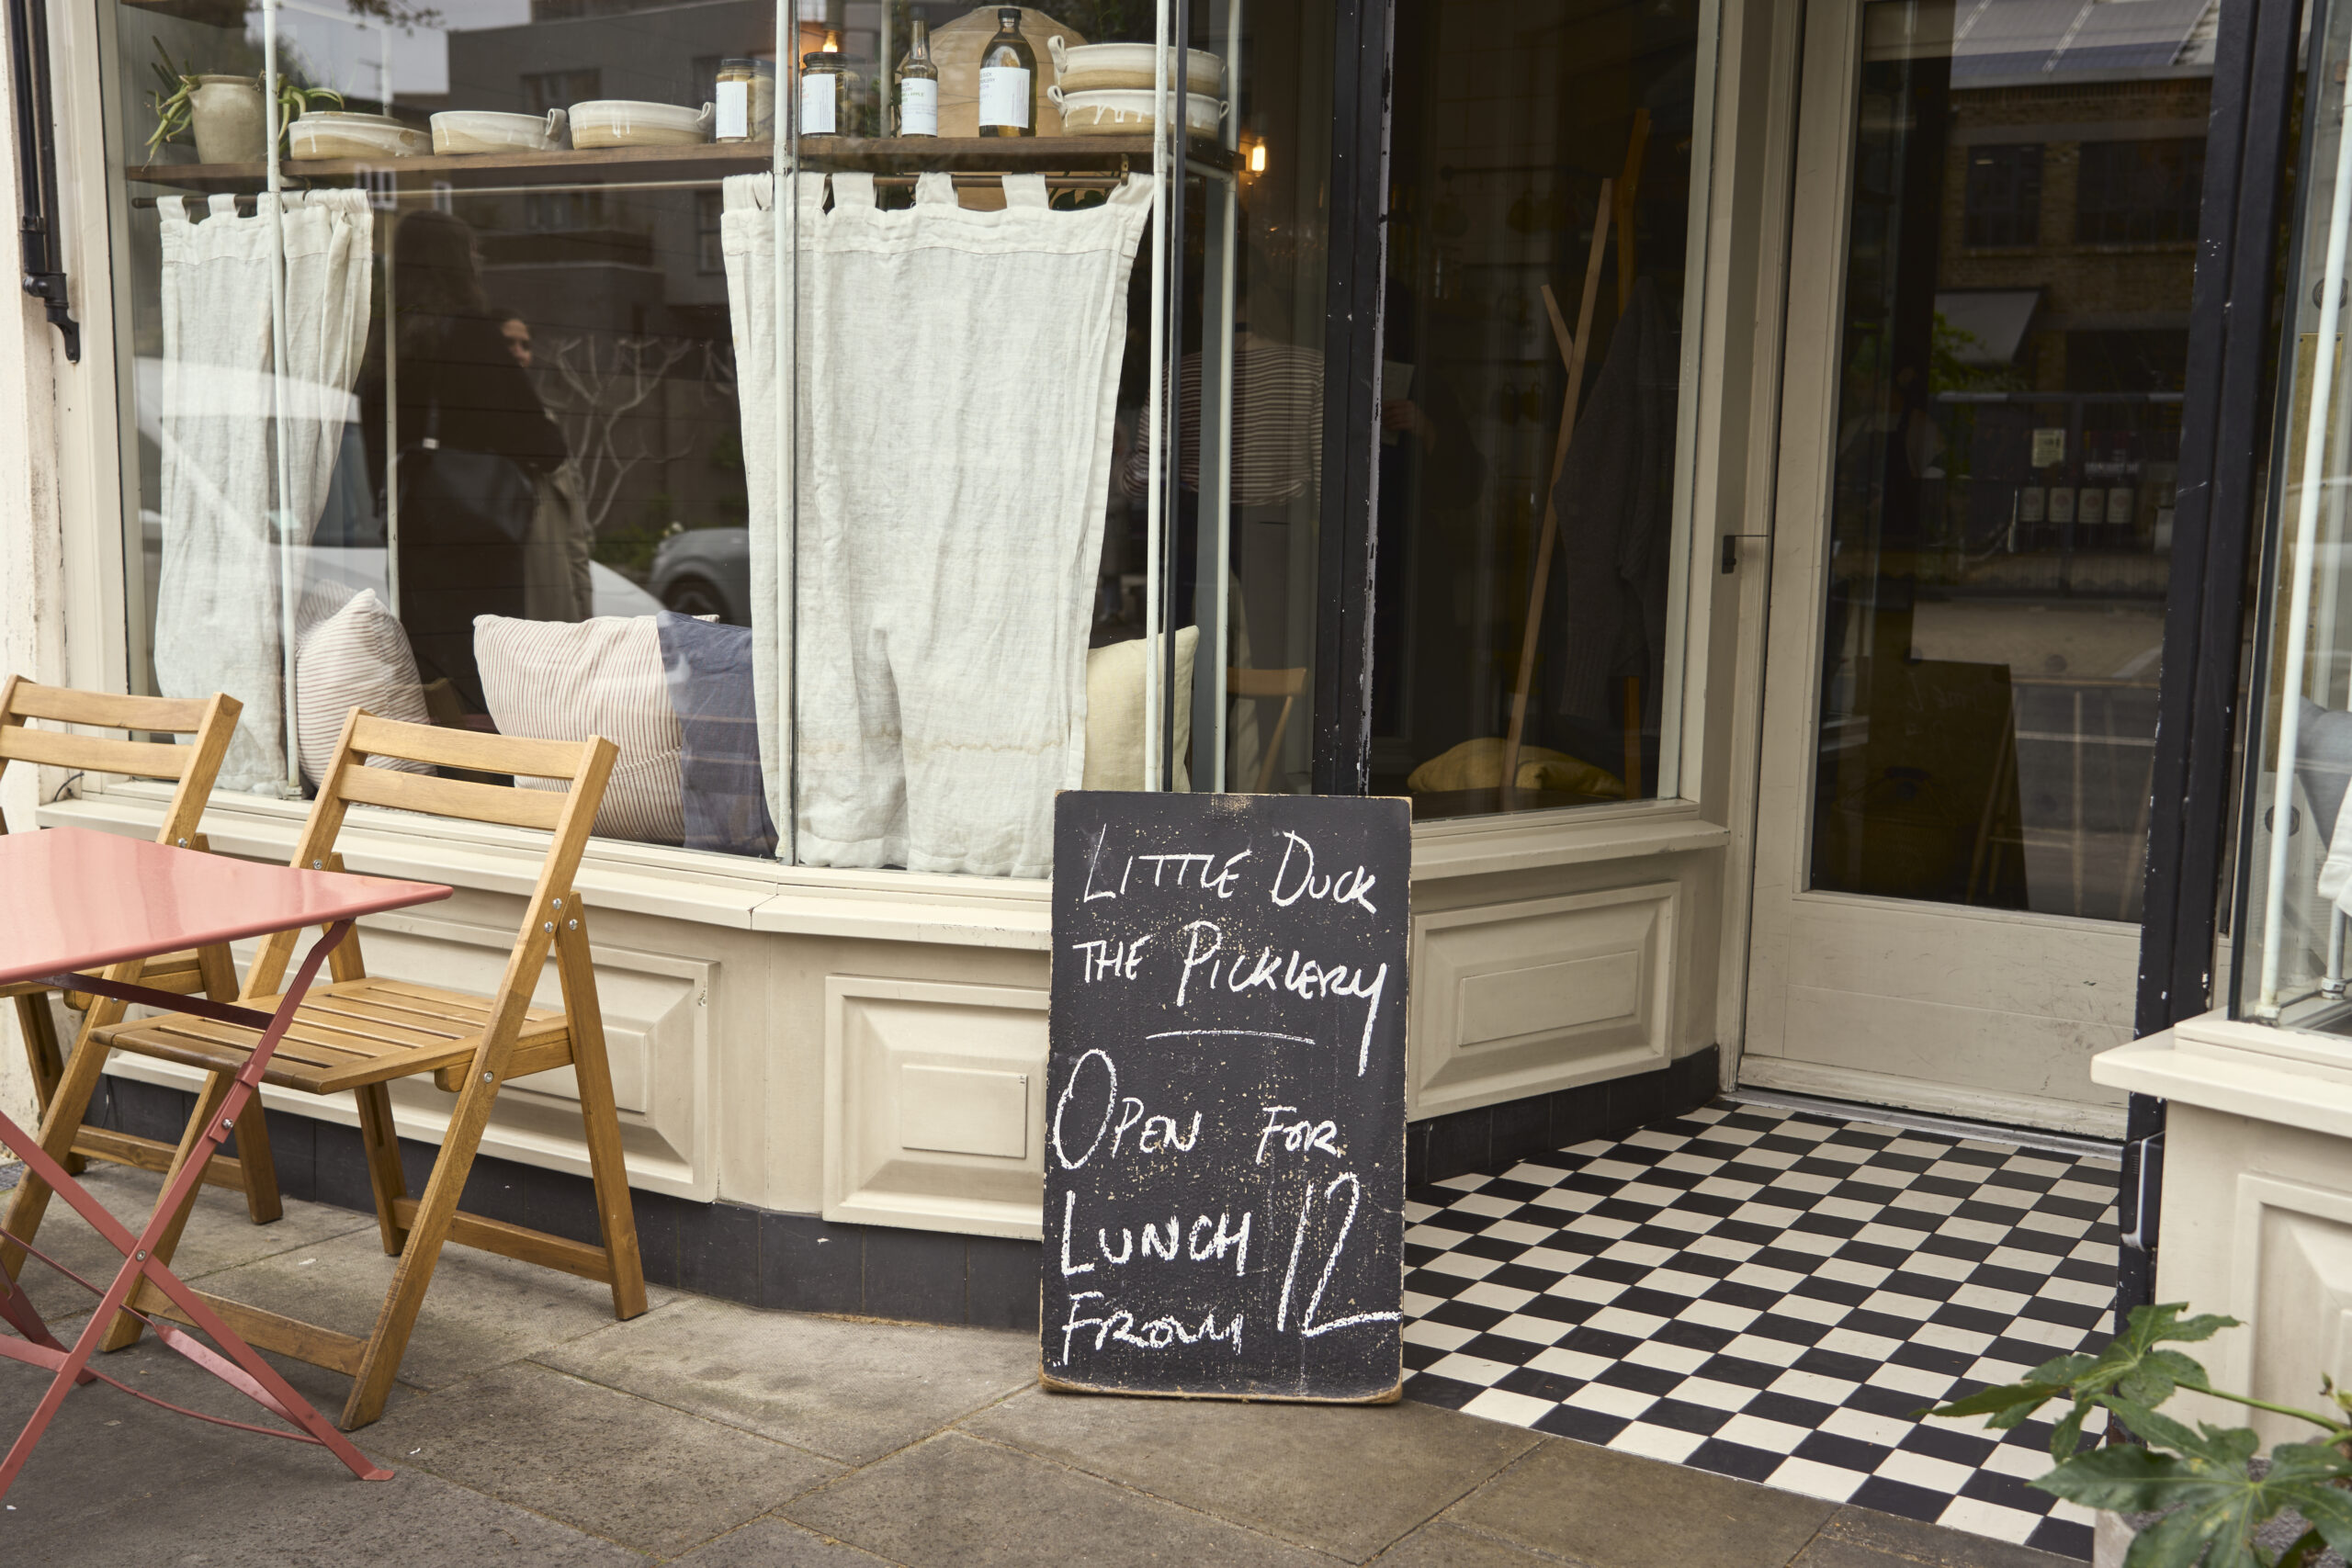 LITTLE DUCK
THE PICKLERY
OPEN FOR
LUNCH 12
FROM